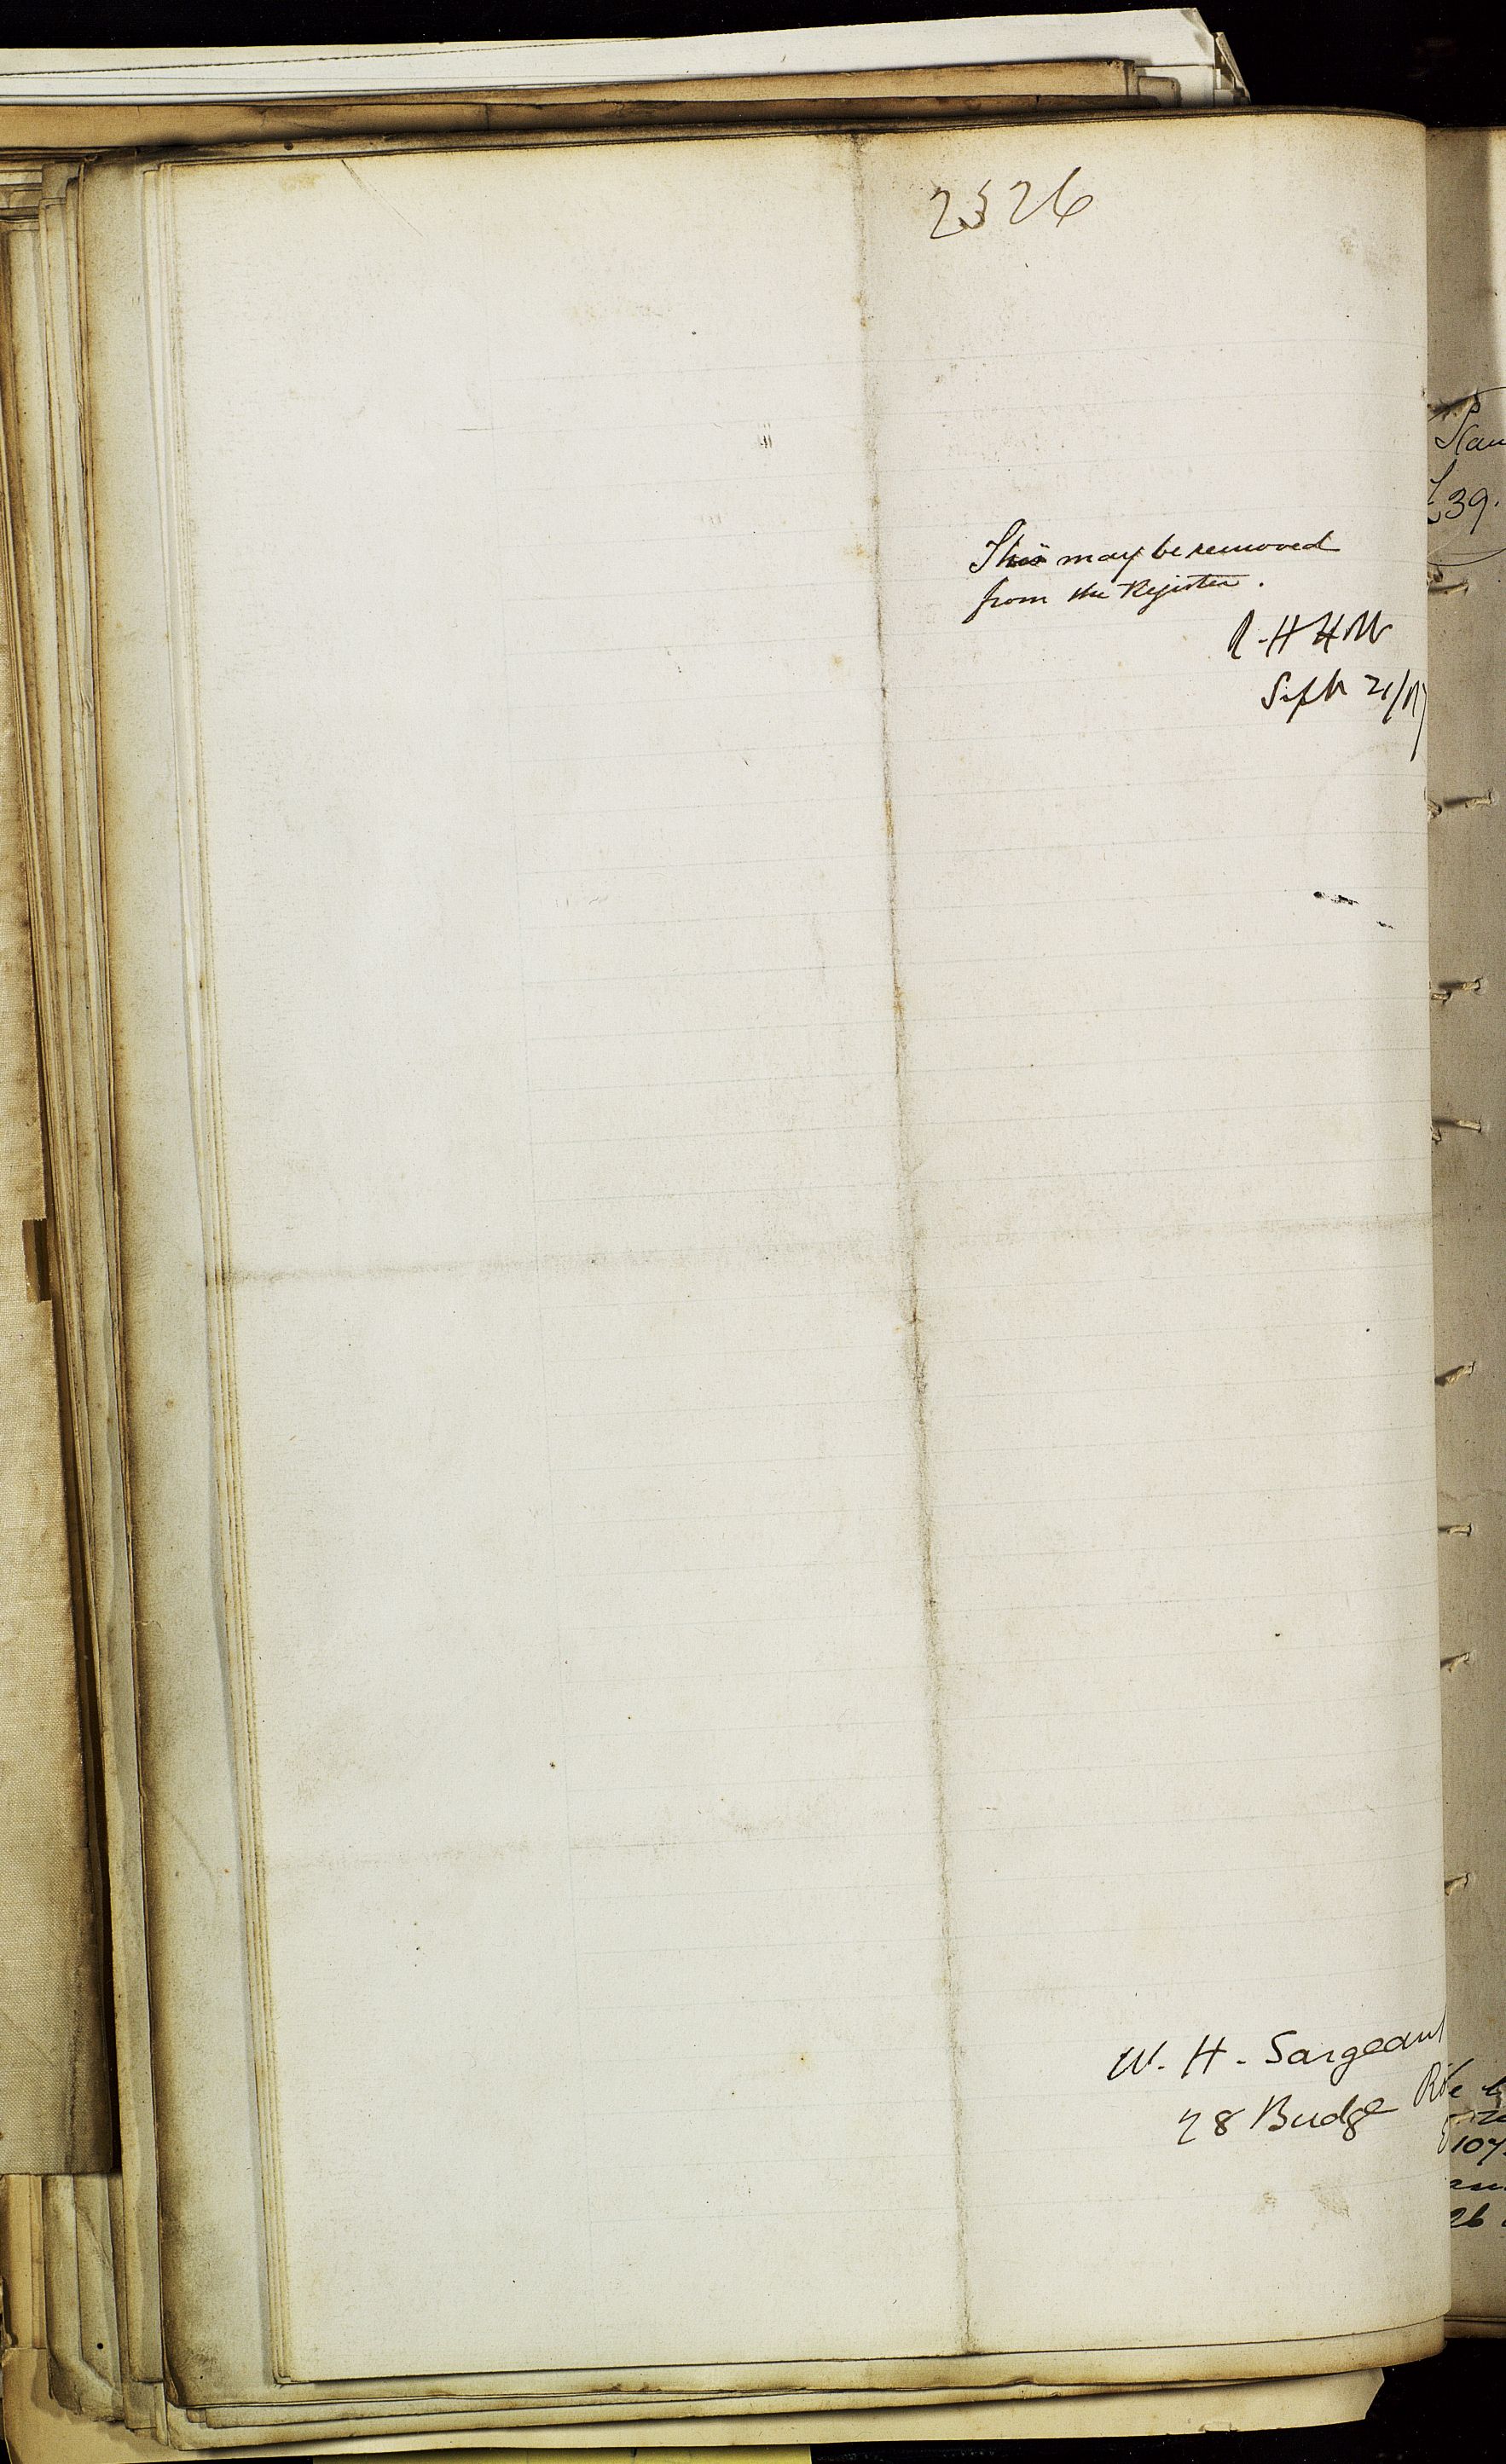 2526
This may be removed
from the Register.
Sept 21/
W. H. Sargeant
28 Budge
£39.
107
26